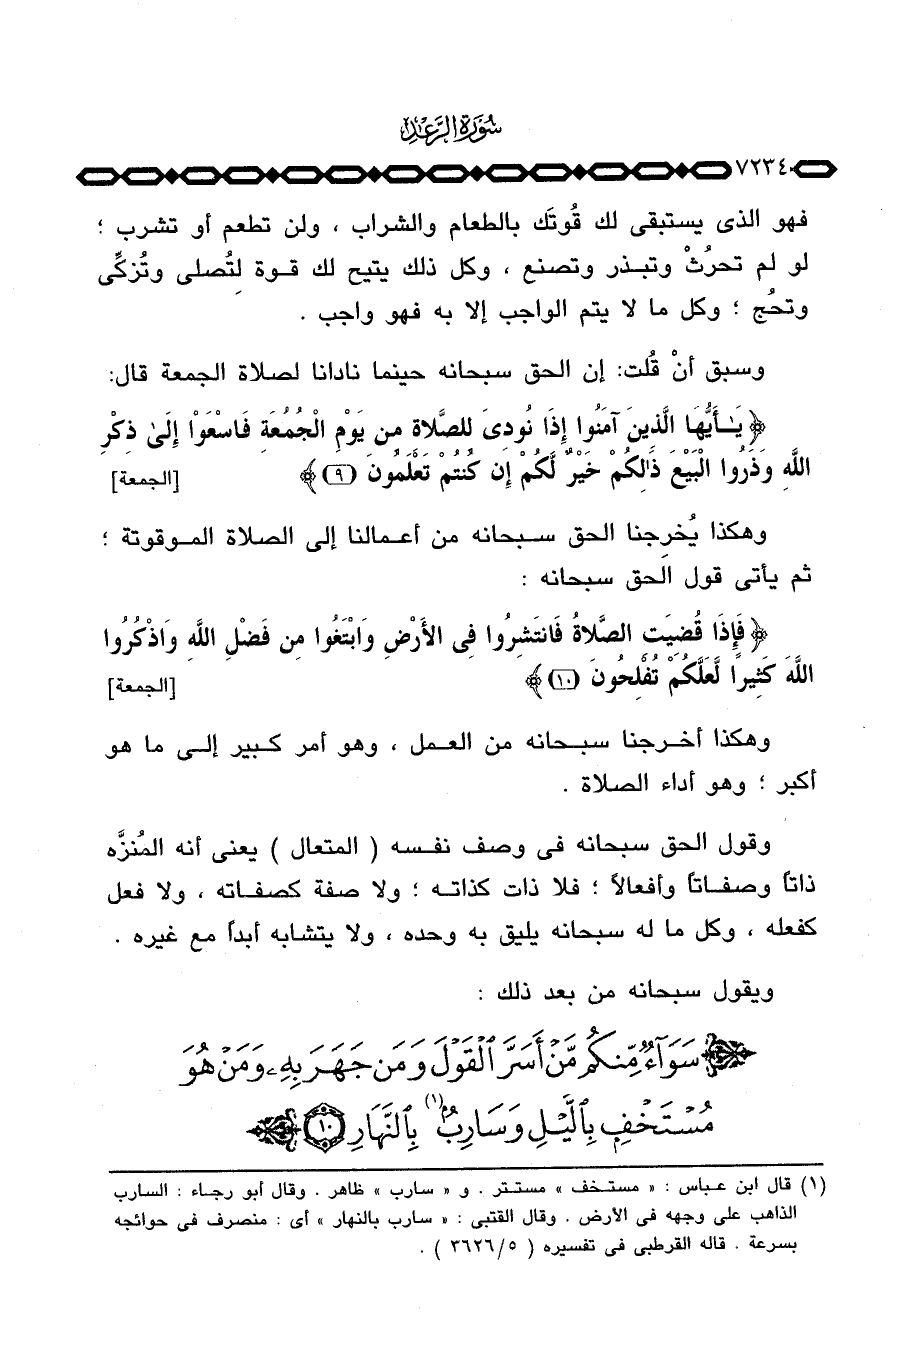 سُورَةُ الرَّعْدِ
٧٢٣٤
فهو الذى يستبقى لك قُوتَك بالطعام والشراب ، ولن تطعم أو تشرب ؛
لو لم تحرُثْ وتبذر وتصنع ، وكل ذلك يتيح لك قوة لتُصلى وتُزكِّى
وتحُج ؛ وكل ما لا يتم الواجب إلا به فهو واجب .
وسبق أنْ قُلت: إن الحق سبحانه حينما نادانا لصلاة الجمعة قال:
﴿ يَـٰأَيُّهَا الَّذِينَ آمَنُوا إِذَا نُودِىَ لِلصَّلاةِ مِن يَوْمِ الْجُمُعَةِ فَاسْعَوْا إِلَىٰ ذِكْرِ
اللَّهِ وَذَرُوا الْبَيْعَ ذَٰلِكُمْ خَيْرٌ لَّكُمْ إِن كُنتُمْ تَعْلَمُونَ (٩) ﴾ [الجمعة]
وهكذا يُخرِجنا الحق سبحانه من أعمالنا إلى الصلاة الموقوتة ؛
ثم يأتى قول الحق سبحانه :
﴿ فَإِذَا قُضِيَتِ الصَّلاةُ فَانتَشِرُوا فِى الأَرْضِ وَابْتَغُوا مِن فَضْلِ اللَّهِ وَاذْكُرُوا
اللَّهَ كَثِيرًا لَّعَلَّكُمْ تُفْلِحُونَ (١٠) ﴾ [الجمعة]
وهكذا أخرجنا سبحانه من العمل ، وهو أمر كبير إلى ما هو
أكبر ؛ وهو أداء الصلاة .
وقول الحق سبحانه فى وصف نفسه ( المتعال ) يعنى أنه المُنزَّه
ذاتاً وصفاتاً وأفعالاً ؛ فلا ذات كذاته ؛ ولا صفة كصفاته ، ولا فعل
كفعله ، وكل ما له سبحانه يليق به وحده ، ولا يتشابه أبداً مع غيره .
ويقول سبحانه من بعد ذلك :
﴿ سَوَآءٌ مِّنكُم مَّنْ أَسَرَّ ٱلْقَوْلَ وَمَن جَهَرَ بِهِۦ وَمَنْ هُوَ
مُسْتَخْفٍ بِٱلَّيْلِ وَسَارِبٌۢ(١) بِٱلنَّهَارِ ١٠ ﴾
(١) قال ابن عباس : « مستخف » مستتر . و « سارب » ظاهر . وقال أبو رجاء : السارب
الذاهب على وجهه فى الأرض . وقال القتبى : « سارب بالنهار » أى : منصرف فى حوائجه
بسرعة . قاله القرطبى فى تفسيره ( ٣٦٢٦/٥ ) .